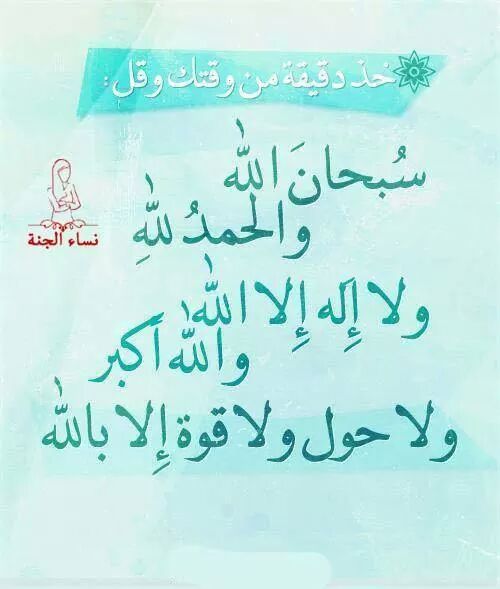 خذ دقيقة من وقتك وقل :
سُبحانَ الله
والحمدُ للهِ
نساء الجنة
ولا إِله إِلا الله
والله أكبر
ولا حول ولا قوة إِلا بالله